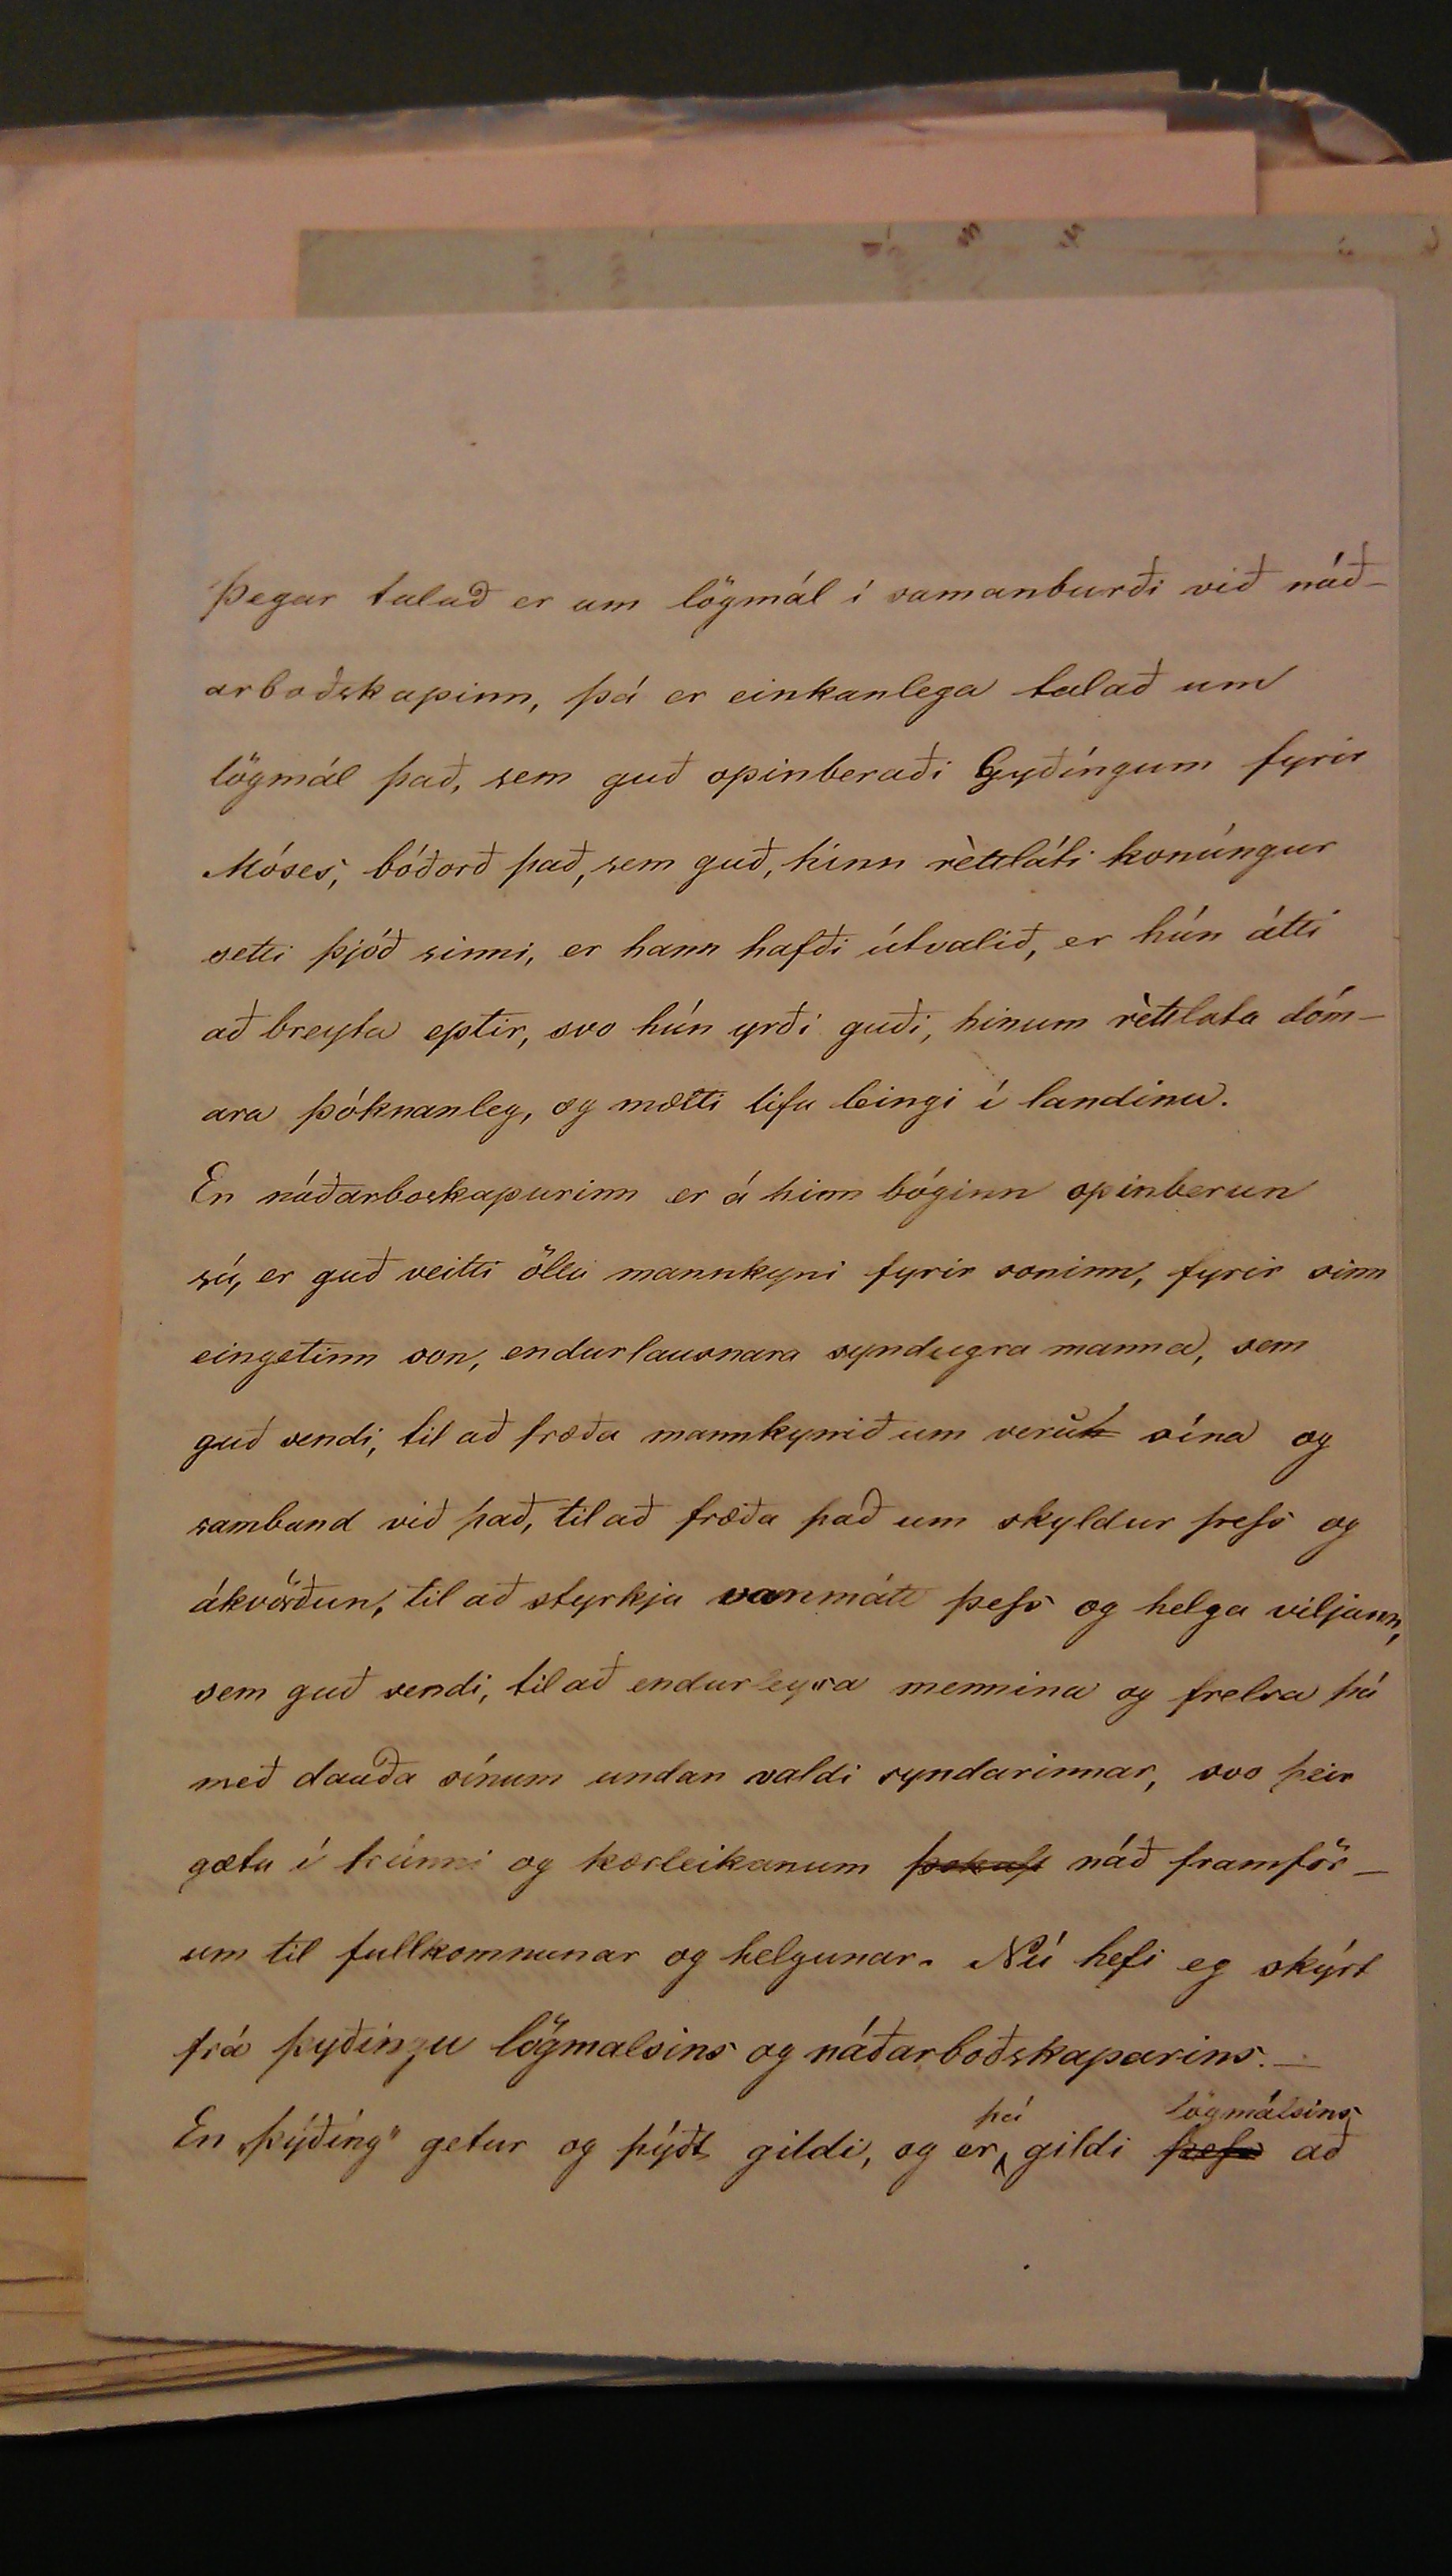 Þegar talað er um lögmál í samanburði við náð-
arboðskapinn, þá er einkanlega talað um
lögmál það, sem guð opinberaði Gyðíngum fyrir
Móses, bóðorð það, sem guð, hinn rèttláti konúngur
setti þjóð sinni, er hann hafði útvalið, er hún átti
að breyta eptir, svo hún yrði guði, hinum rèttlata dóm-
ara þóknanleg, og mætti lifa leingi í landinu.
En náðarboskapurinn er á hinn bóginn opinberun
sú, er guð veitti öllu mannkyni fyrir soninn, fyrir sinn
eingetinn son, endurlausnara syndugra manna, sem
guð sendi, til að fræða mannkynið um veru sína og
samband við það, til að fræða það um skyldur þess og
ákvörðun, til að styrkja vanmátt þess og helga viljann,
sem guð sendi, til að endurleysa mennina og frelsa þá
með dauða sínum undan valdi syndarinnar, svo þeir
gætu í trúnni og kærleikanum náð framför-
um til fullkomnunar og helgunar. Nú hefi eg skýrt
frá þyðingu lögmalsins og náðarboðskaparins. —
En „þýðíng" getur og þýðt gildi, og er þá gildi lögmálsins að